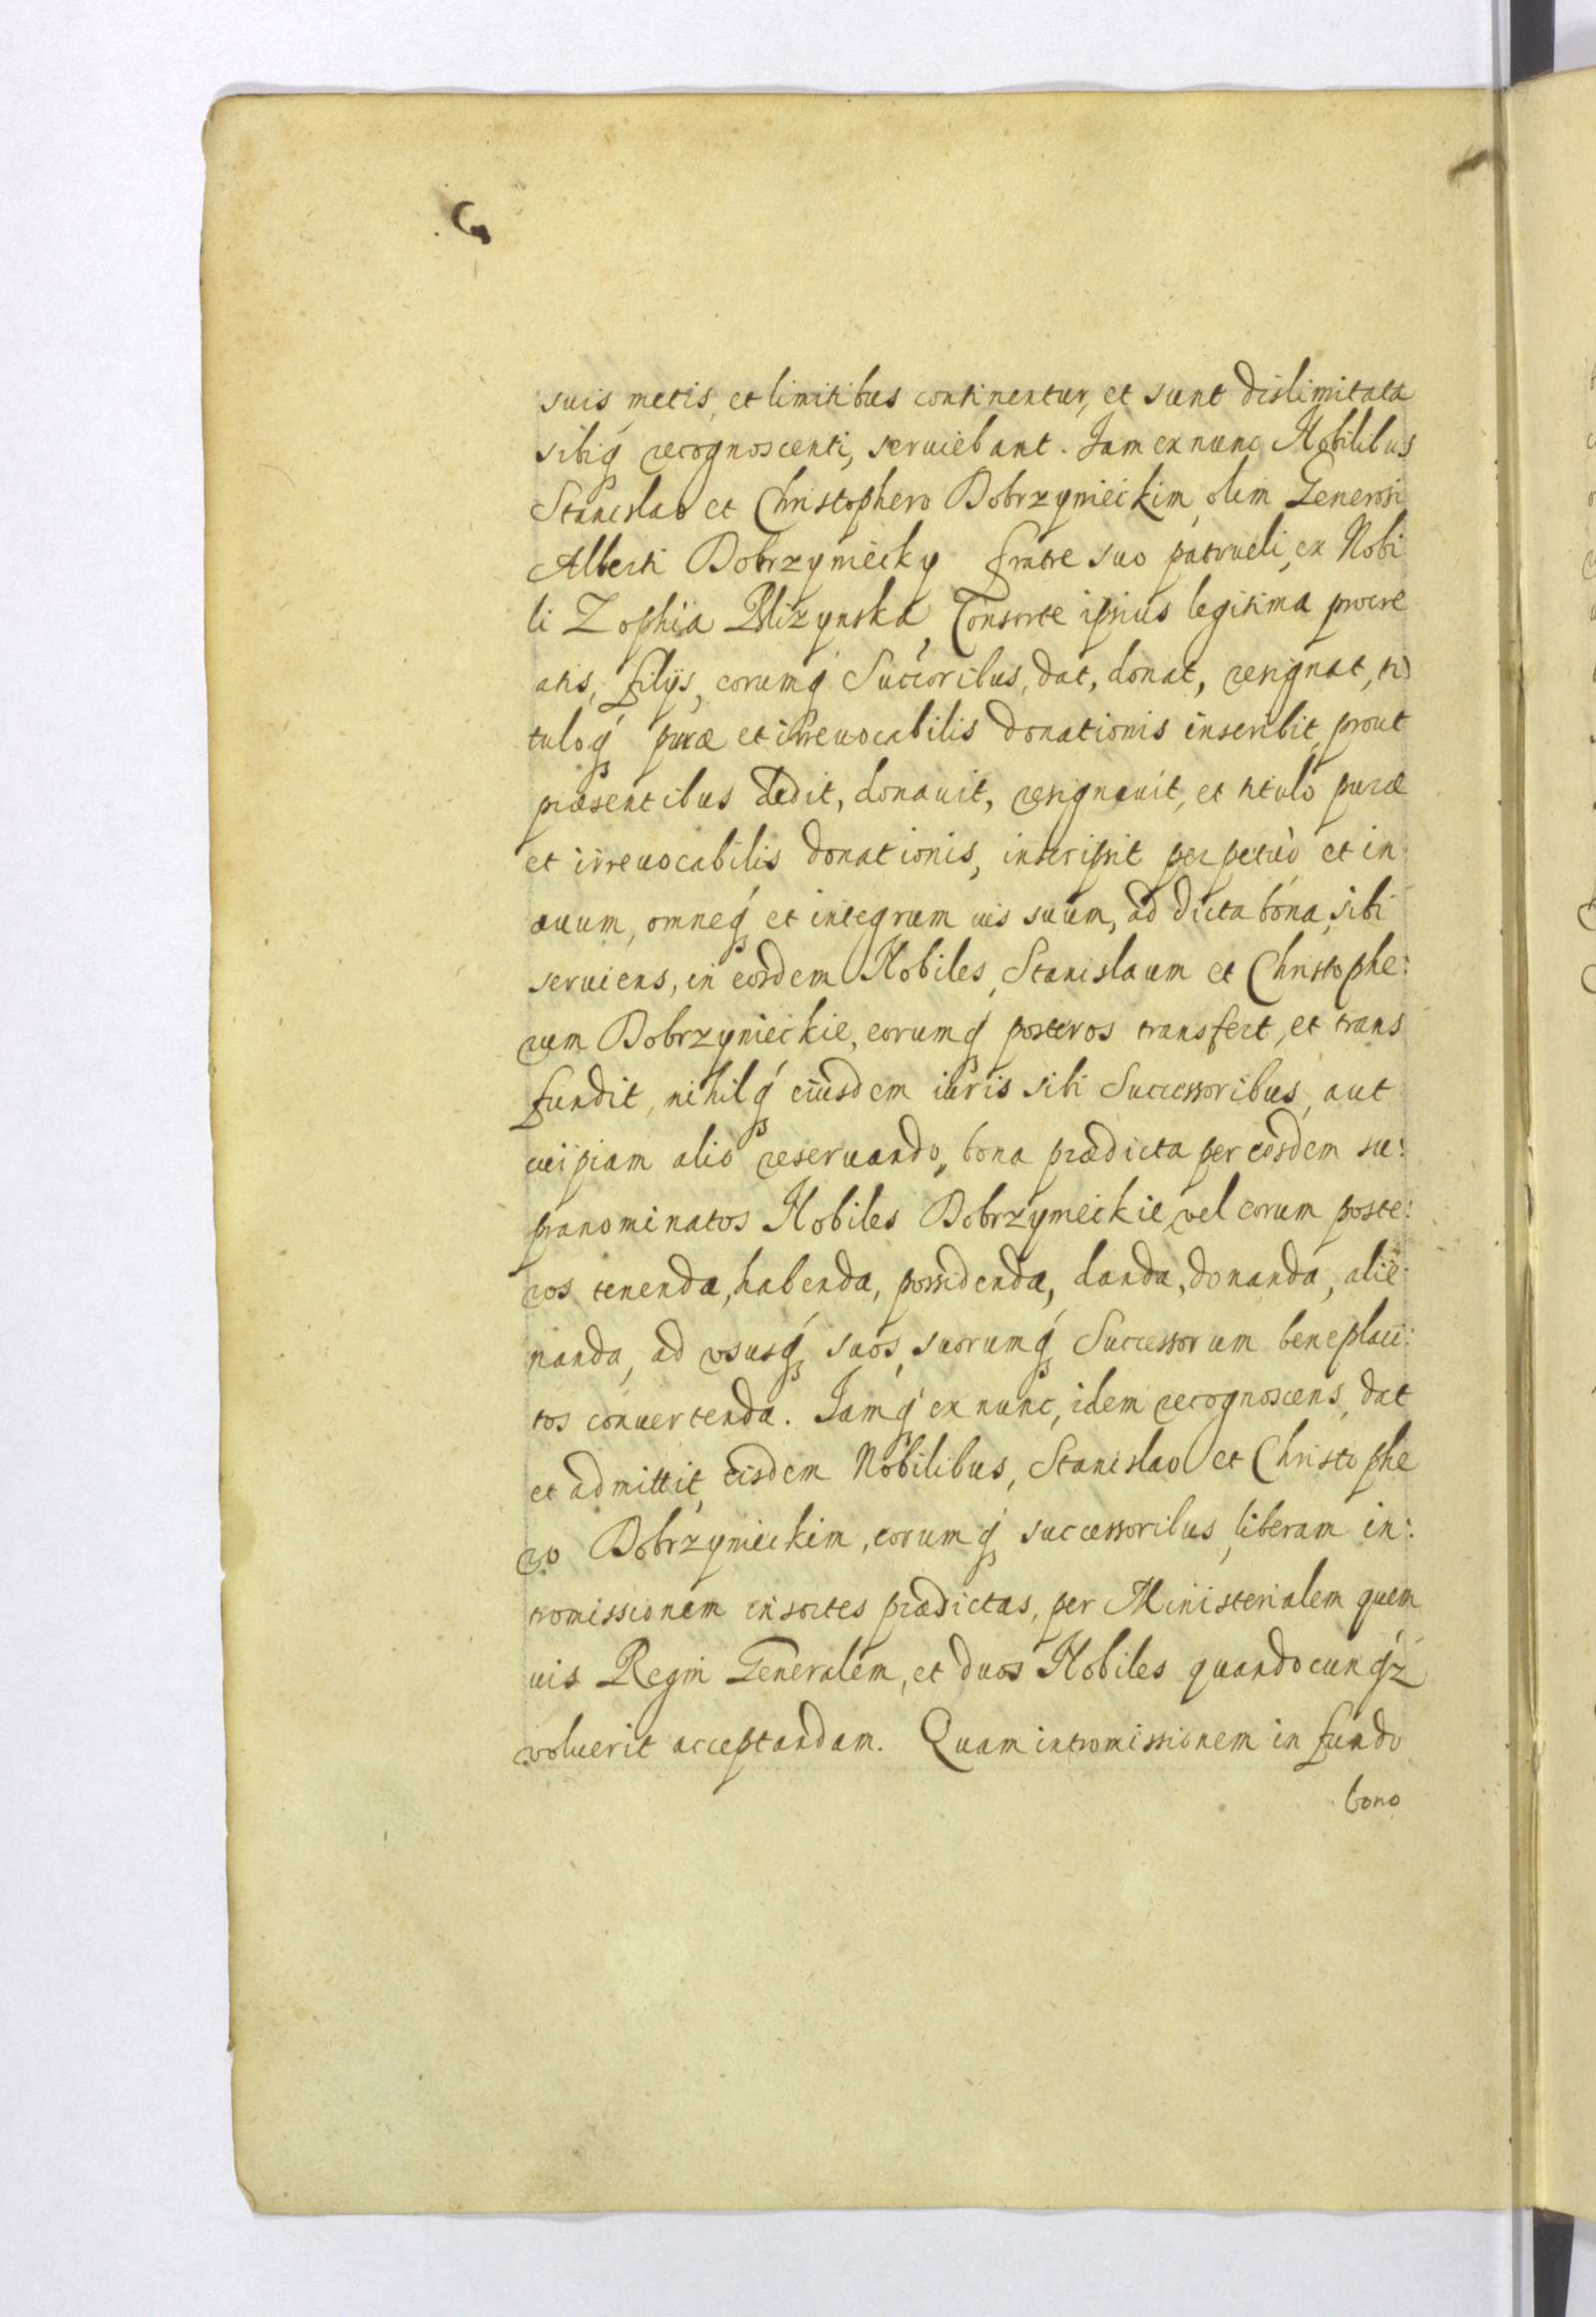 suis metis, et limitibus continentur, et sunt dislimitata
sibiq́ꝫ recognoscenti, seruiebant. Jam ex nunc Nobilibus
Stanislao et Christophero Dobrzynieckim, olim Generosi
Alberti Dobrzyniecky fratre suo patrueli, ex Nobi
li Zophia Blizynska, Consorte ipsius legitima procre
atis, filijs, eorumq́ Succoribus, dat, donat, resignat, ti
tuloq́ꝫ puræ et irreuocabilis donationis inscribit, prout
præsentibus dedit, donauit, resignauit, et titulo puræ
et irreuocabilis donationis, inscripsit perpetuò et in
æuum, omneq́ꝫ et integrum ius suum, ad dicta bona, sibi
seruiens, in eosdem Nobiles, Stanislaum et Christophe:
rum Dobrzynieckie, eorumq́ꝫ posteros transfert, et trans
fundit, nihilq́ꝫ eiusdem iuris sibi Successoribus, aut
cuipiam alio reseruando, bona prædicta per eosdem su:
pranominatos Nobiles Dobrzynieckie, vel eorum poste:
ros tenenda, habenda, possidenda, danda, donanda, alie:
nanda, ad vsusq́ꝫ suos, suorumq́ꝫ Successorum beneplaci:
tos conuertenda. Jamq́ꝫ ex nunc, idem recognoscens, dat
et admittit, eisdem Nobilibus, Stanislao et Christophe
ro Dobrzynieckim, eorumq́ꝫ successoribus, liberam in:
tromissionem in sortes prædictas, per Ministerialem quem
uis Regni Generalem, et duos Nobiles quandocunq́ꝫ
voluerit acceptandam. Quam intromissionem in fundo
bono